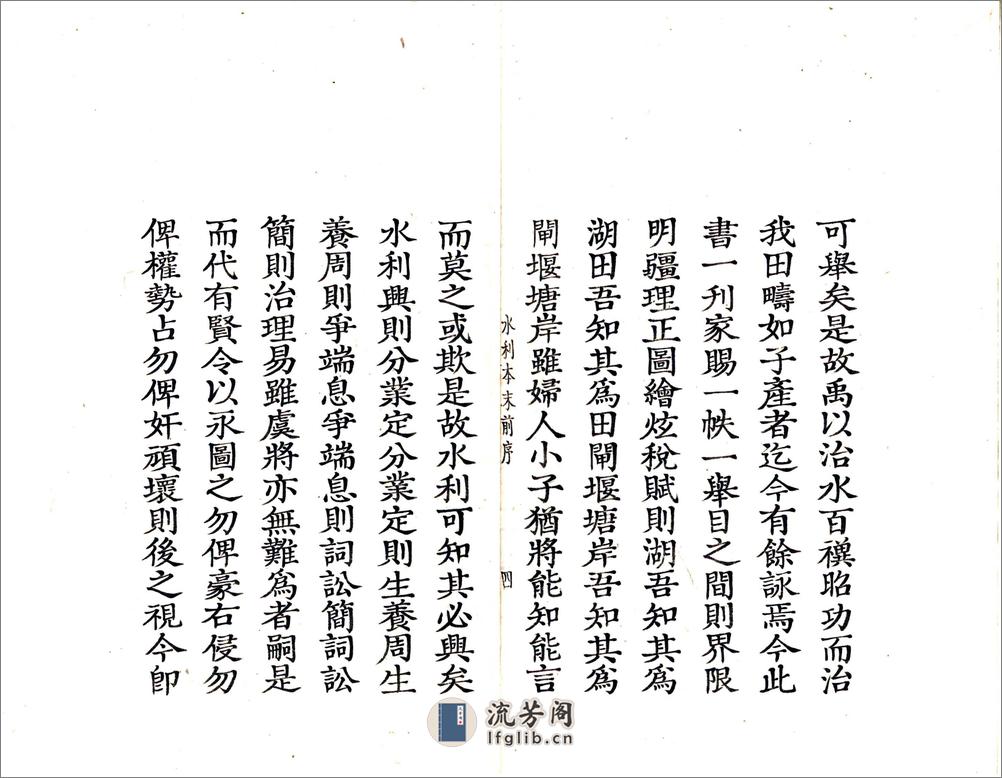 可舉矣是故禹以治水百禩昭功而治
我田疇如子產者迄今有餘詠焉今此
書一刋家賜一帙一舉目之間則界限
明疆理正圖繪炫稅賦則湖吾知其爲
湖田吾知其爲田閘堰塘岸吾知其爲
閘堰塘岸雖婦人小子猶將能知能言
水利本末前序 四
而莫之或欺是故水利可知其必興矣
水利興則分業定分業定則生養周生
養周則爭端息爭端息則詞訟簡詞訟
簡則治理易雖虞將亦無難爲者嗣是
而代有賢令以永圖之勿俾豪右侵勿
俾權勢占勿俾奸頑壞則後之視今卽
流芳阁
lfglib.cn